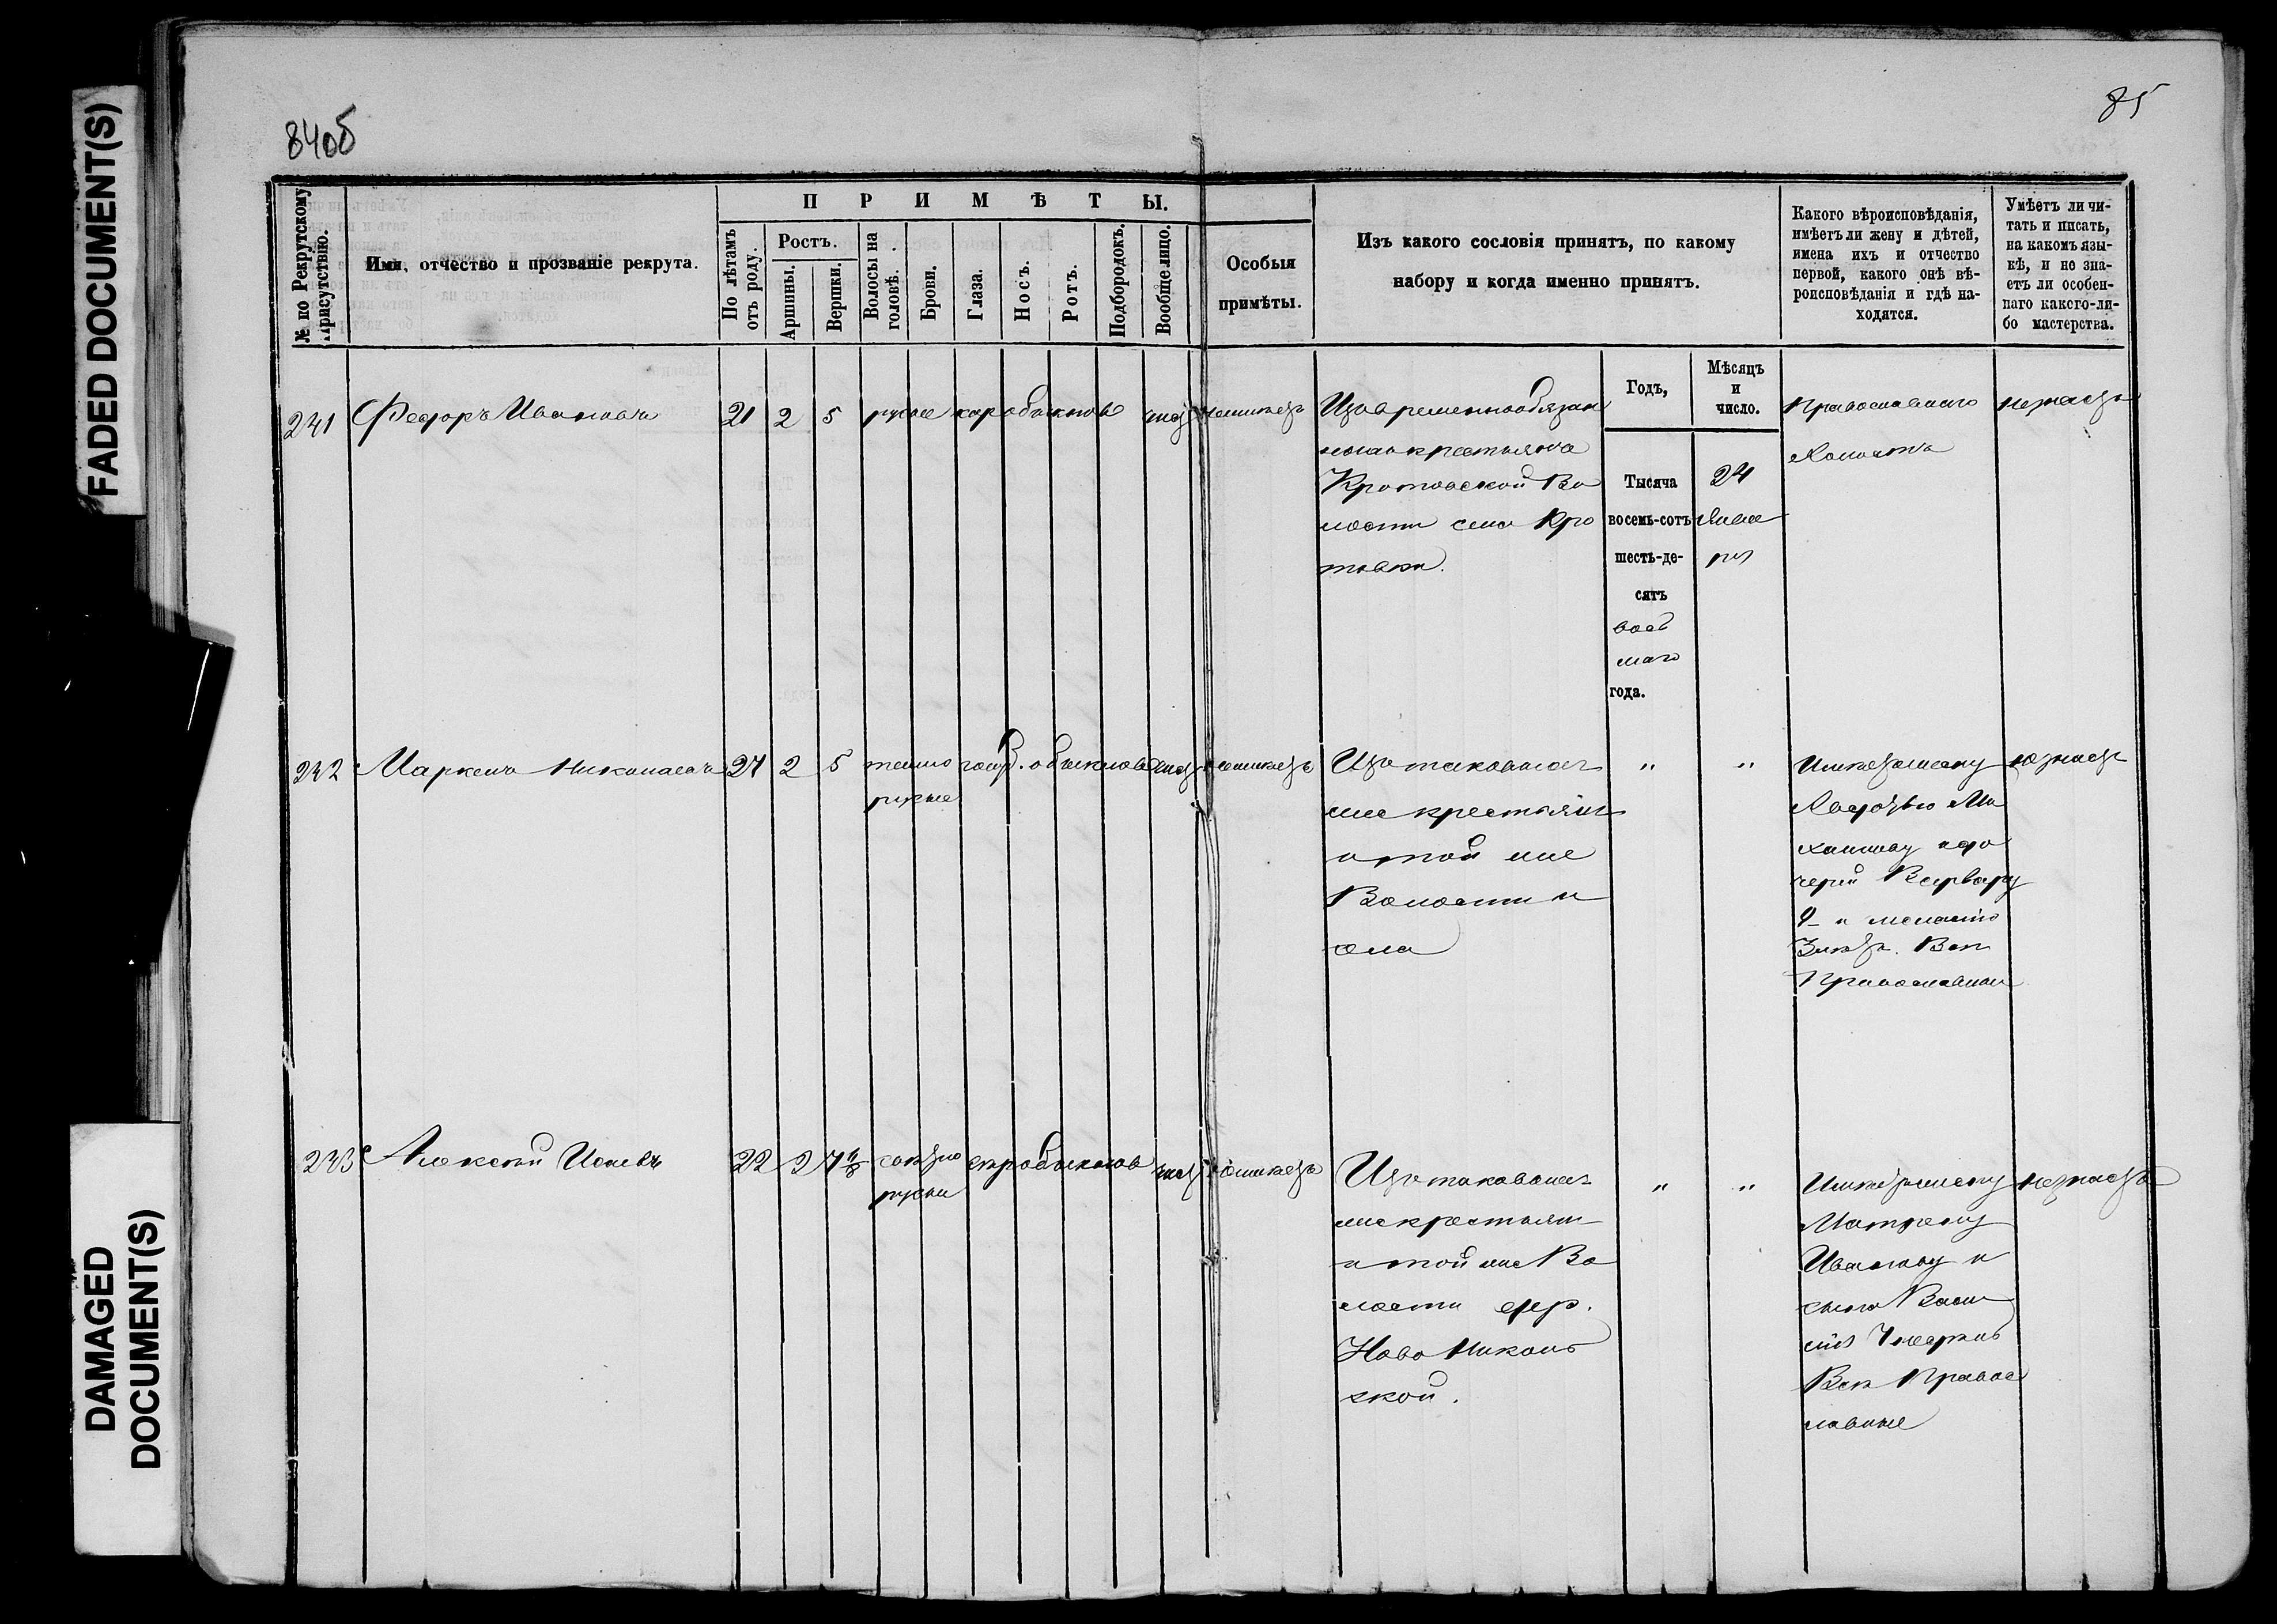 FADED DOCUMENT(S)
DAMAGED
DOCUMENT(S)
84об
85
№ по Рекрутскому
присутствію.
Имя, отчество и прозваніе рекрута.
ПРИМѢТЫ.
По лѣтамъ
отъ роду.
Ростъ.
Аршины.
Вершки.
Волосы на
головѣ.
Брови.
Глаза.
Носъ.
Ротъ.
Подбородокъ.
Вообще лицо.
Особыя
примѣты.
Изъ какого сословія принятъ, по какому
набору и когда именно принятъ.
Какого вѣроисповѣданія,
имѣетъ ли жену и дѣтей,
имена ихъ и отчество
первой, какого онѣ вѣ-
роисповѣданія и гдѣ на-
ходятся.
Умѣетъ ли чи-
тать и писать,
на какомъ язы-
кѣ, и не зна-
етъ ли особен-
наго какого-ли-
бо мастерства.
Годъ,
Мѣсяцъ
и
число.
241 Федоръ Ивановъ 21 2 5 русые кар обыкнов чист неимѣетъ
Изъ временнообязан
ныхъ крестьянъ
Кротовской Во
лости села Кро
товки.
Тысяча
восемь-сотъ
шесть-де-
сятъ
вось
маго
года.
24
Янва
ря
Православнаго
Холостъ
незнаетъ
242 Маркелъ Николаевъ 27 2 5 темно голуб. обыкнов чист неимѣетъ
русые
Изъ таковыхъ
же крестьянъ
и той же
Волости и
села
" "
Имѣетъ жену
Ми
хайлову и до
черей Варвару
Православныя
незнаетъ
243 Алексѣй 22 2 свѣтло сер обыкнов чист неимѣетъ
русые
Изъ таковыхъ
же крестьянъ
и той же Во
лости дер.
Ново Николь
ской.
" "
Имѣетъ жену
Матрену
Иванову и
сына Васи
лія
Всѣ Правос
лавные
незнаетъ